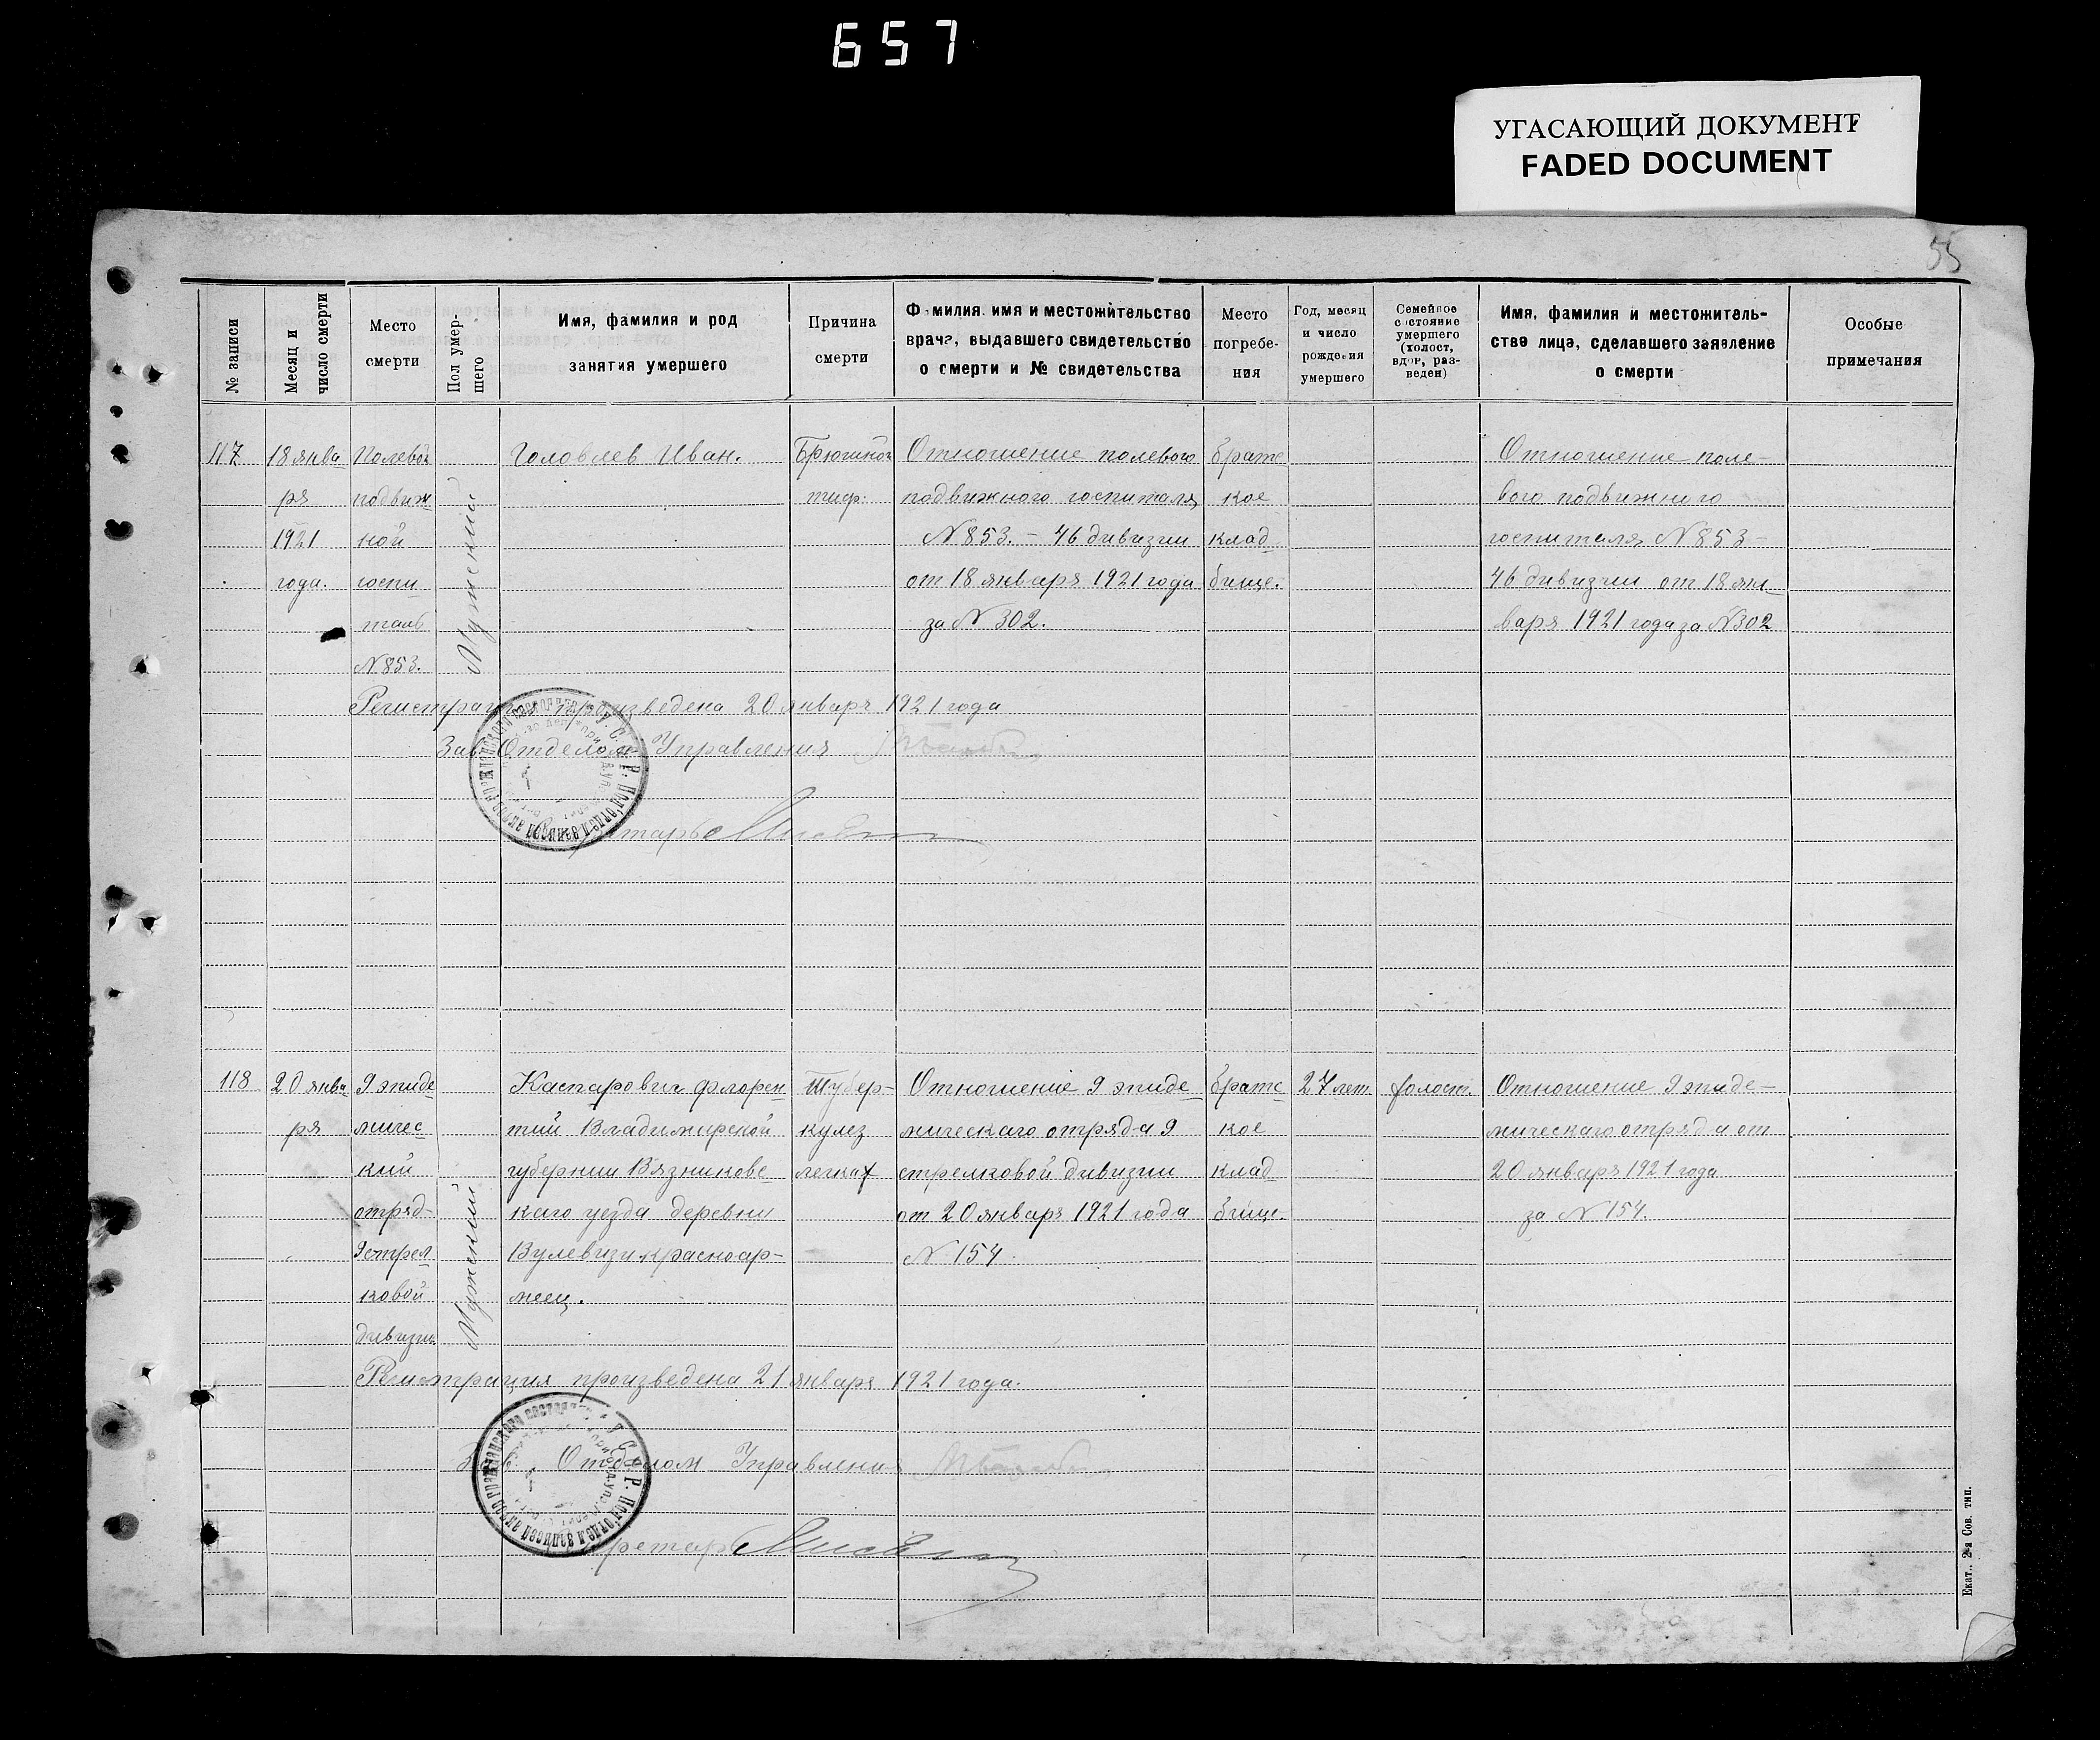 657
УГАСАЮЩИЙ ДОКУМЕНТ
FADED DOCUMENT
55
№ записи
Месяц и
число смерти
Место
смерти
Пол умер-
шего
Имя, фамилия и род
занятия умершего
Причина
смерти
Фамилия, имя и местожительство
врача, выдавшего свидетельство
о смерти и № свидетельства
Место
погребе-
ния
Год, месяц
и число
рождения
умершего
Семейное
состояние
умершего
(холост,
вдов, раз-
веден)
Имя, фамилия и местожитель-
ство лица, сделавшего заявление
о смерти
Особые
примечания
117
18 янва
ря
1921
года.
Полевой
подвиж
ной
госпи
таль
N 853.
Мужской
Головлев Иван.
Брюшной
тиф.
Отношение полевого
подвижного госпиталя
N 853. - 46 дивизии
от 18 января 1921 года
за N 302.
братс
кое
клад
бище.
Отношение поле-
вого подвижного
госпиталя N 853 -
46 дивизии от 18 ян
варя 1921 года за N 302
произведена 20 января 1921 года
Зав. Отделом Управления
118
20 янва
ря
9 эпиде
мичес
кий
отряд
9 стрел
ковой
дивизии
Мужской
Каспарович Флорен
тий Владимирской
губернии Вязниковс
каго уезда деревни
красноар-
меец.
Тубер-
кулез
легких
Отношение 9 эпиде
мическаго отряда 9
стрелковой дивизии
от 20 января 1921 года
N 154.
братс
кое
клад
бище.
27 лет
холост.
Отношение 9 эпиде-
мическаго отряда от
20 января 1921 года
за N 154.
Регистрация произведена 21 января 1921 года.
Отделом Управления
Екат. 2-я Сов. тип.